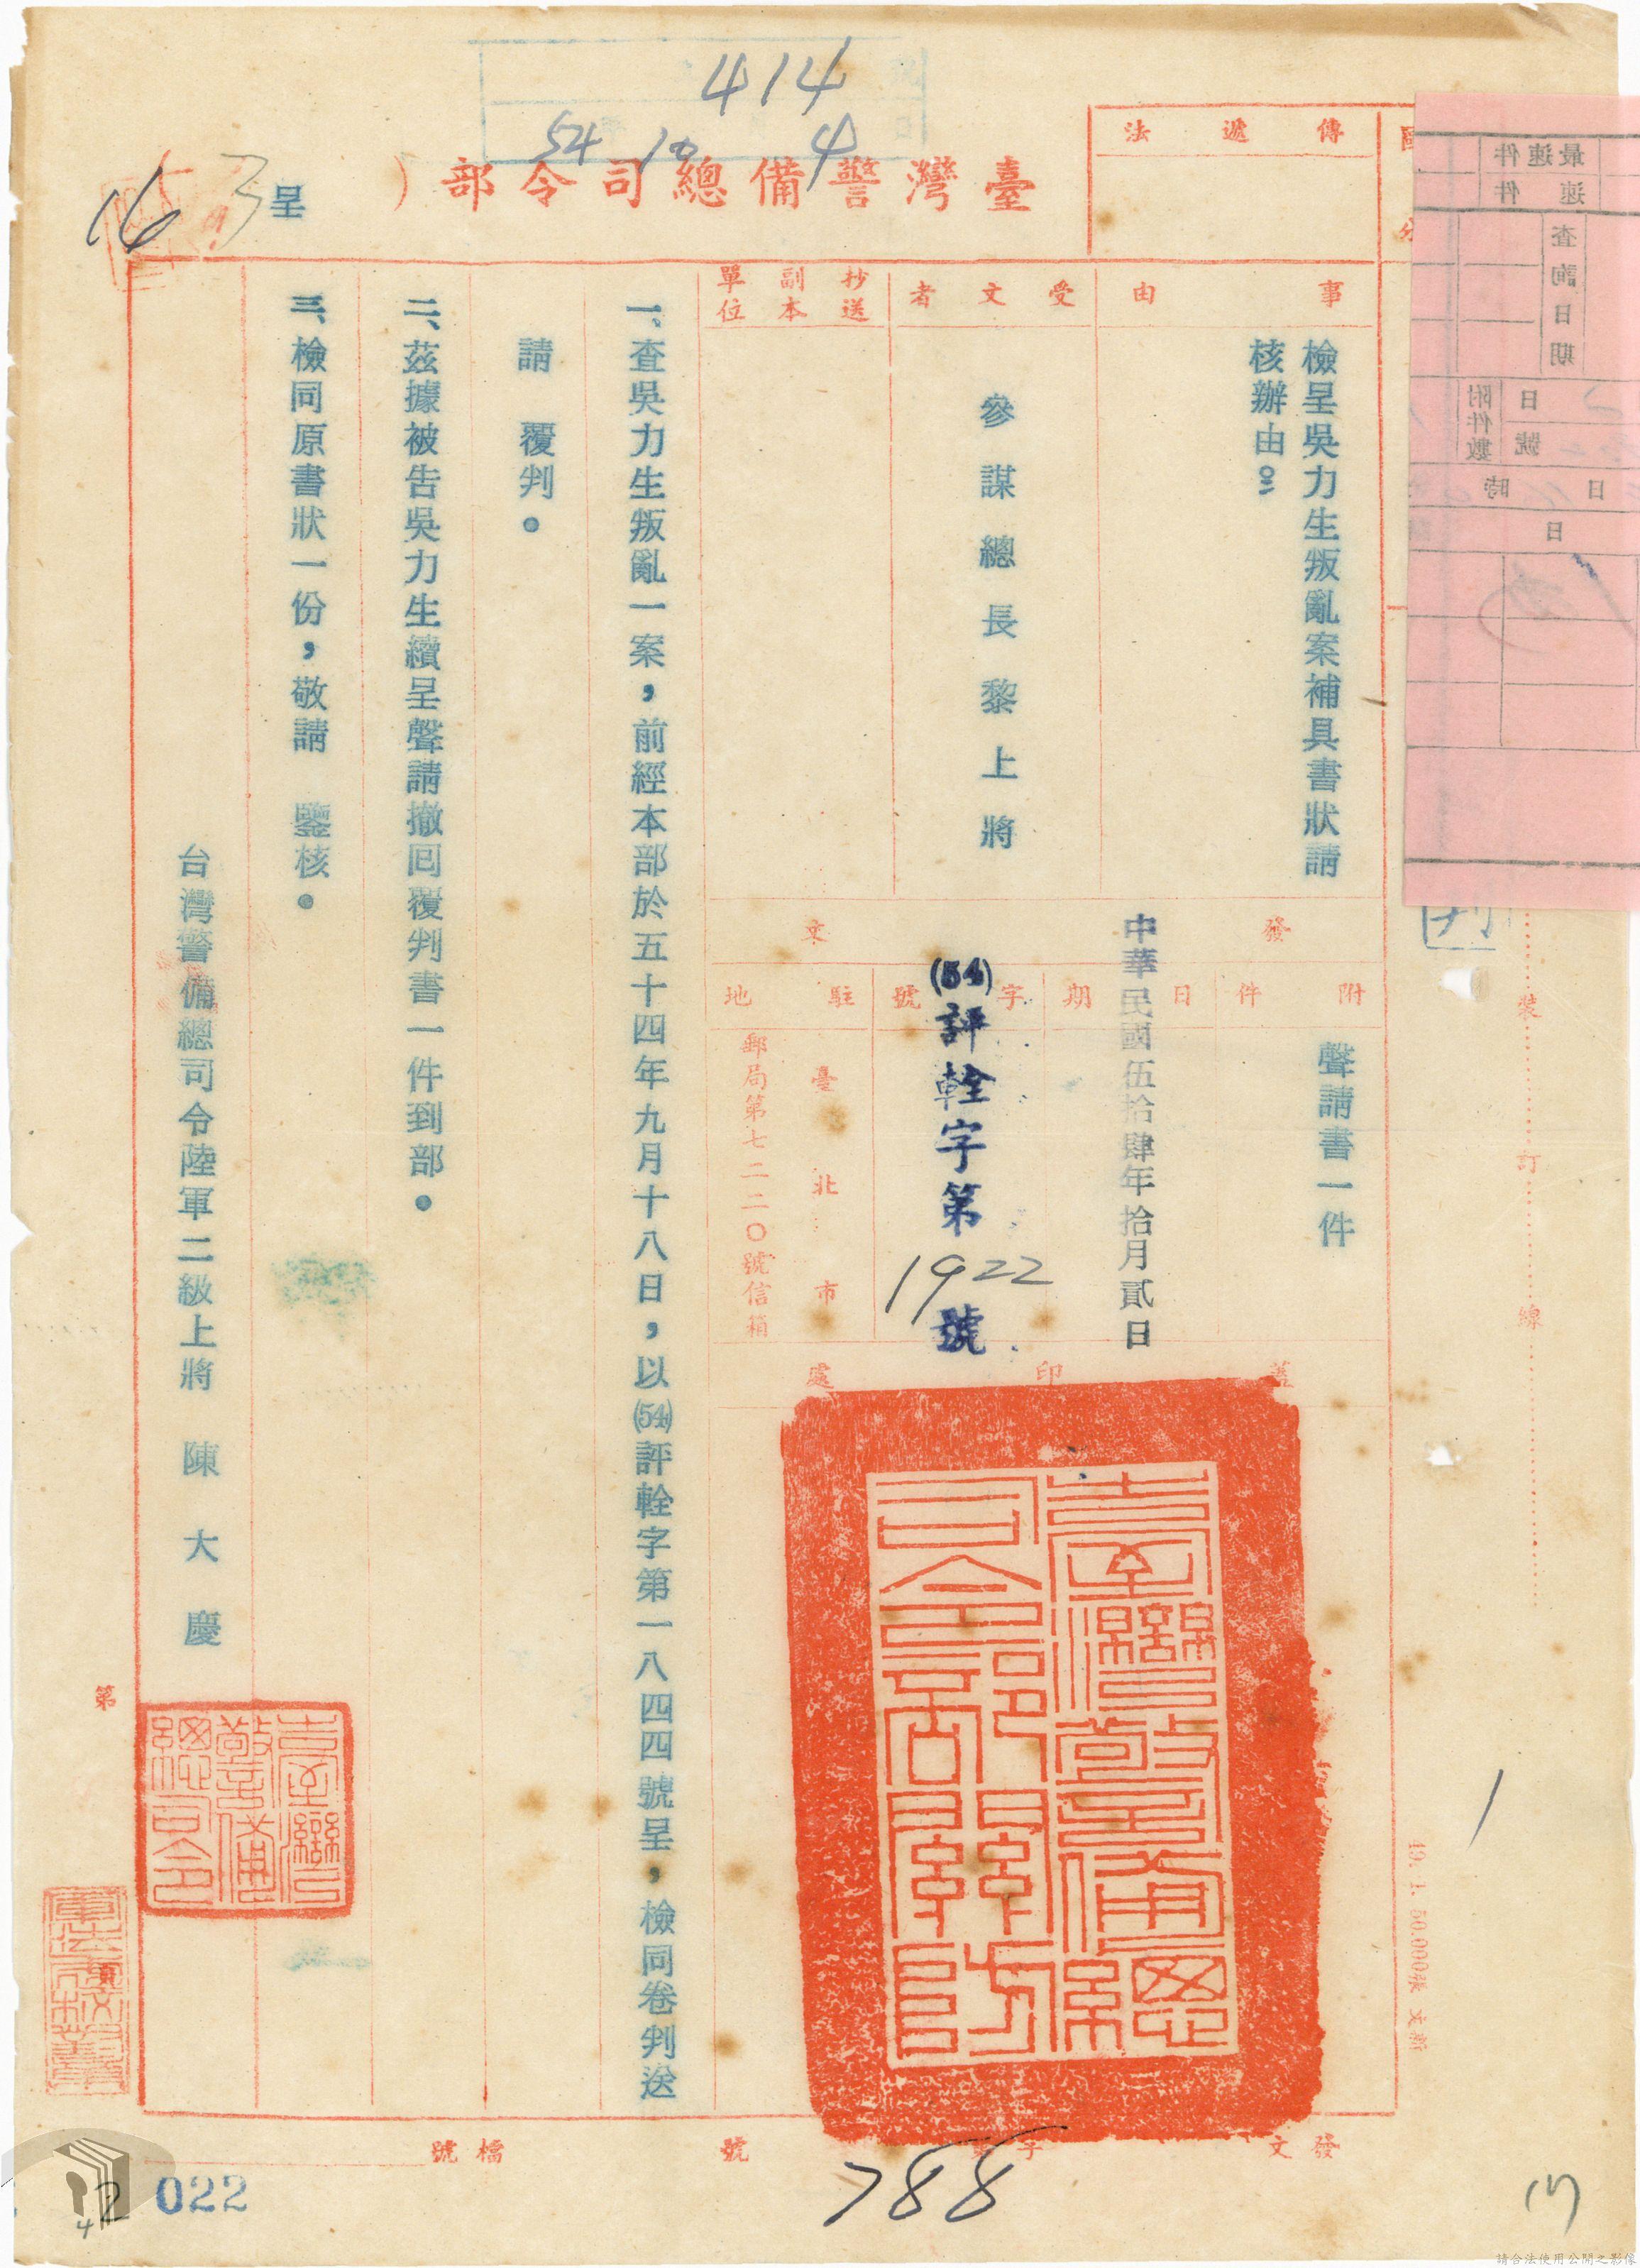 414
54 10 4
臺灣警備總司令部(
呈
16
3
傳遞法
最速件
速件
查詢日期
附件數
日
號
日
時
日
事由
檢呈吳力生叛亂案補具書狀請
核辦由:
受文者
參謀總長黎上將
抄送副本單位
發文
附件
聲請書一件
日期
中華民國伍拾肆年拾月貳日
字號
(54)評輇字第1922號
駐地
臺北市
郵局第七二二〇號信箱
蓋印處
臺灣警備總司令部關防
一、查吳力生叛亂一案,前經本部於五十四年九月十八日,以(54)評輇字第一八四四號呈,檢同卷判送
請 覆判。
二、茲據被告吳力生續呈聲請撤回覆判書一件到部。
三、檢同原書狀一份,敬請 鑒核。
台灣警備總司令陸軍二級上將 陳大慶
臺灣警備總司令
第
裝
訂
線
49. 1. 50.000張 文新
1
發文
字
號
檔號
788
022
42
(7)
請合法使用公開之影像